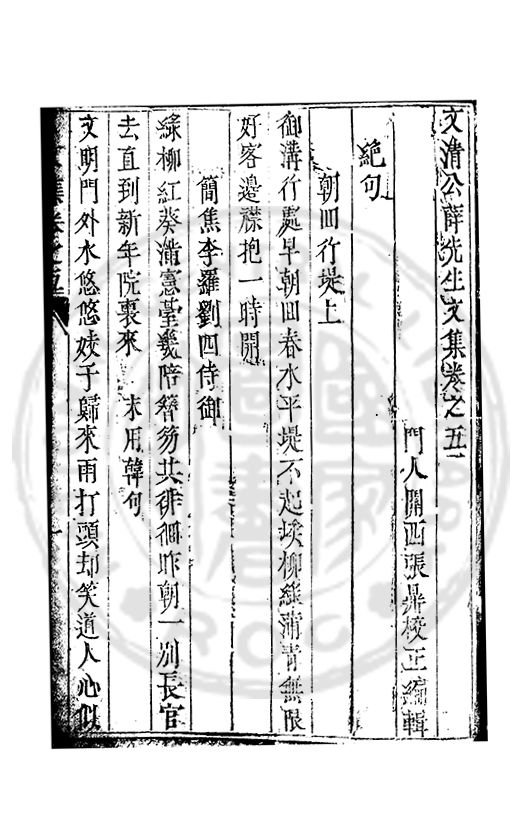 文清公薛先生文集卷之五
門人關西張鼎校正編輯
絶句
朝回行堤上
御溝行處早朝回春水平堤不起埃柳綠蒲青無限
好客邊襟抱一時開
簡焦李羅劉四侍御
綠柳紅葵滿憲臺幾陪簪笏共徘徊昨朝一別長官
去直到新年院裏來 末用韓句
文明門外水悠悠 子歸來雨打頭却笑道人心似